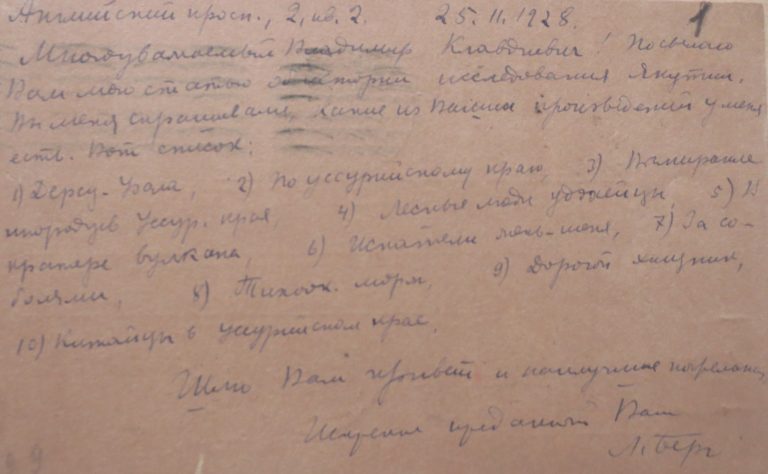 Английский просп., 2, кв. 2. 25.11.1928. 1
Многоуважаемый Владимир Клавдиевич! Посылаю
Вам мою статью о истории исследования Якутии.
Вы меня спрашивали, какие из Ваших произведений у меня
есть. Вот список:
1) Дерсу-Узала, 2) По уссурийскому краю, 3) Вымирание
инородцев Уссур. края, 4) Лесные люди удэхейцы, 5) В
кратере вулкана, 6) Искатели жень-шеня, 7) За со-
болями, 8) Тихоок. морж, 9) Дорогой хищник,
10) Китайцы в Уссурийском крае.
Шлю Вам привет и наилучшие пожелания,
Искренно преданный Вам
Л. Берг